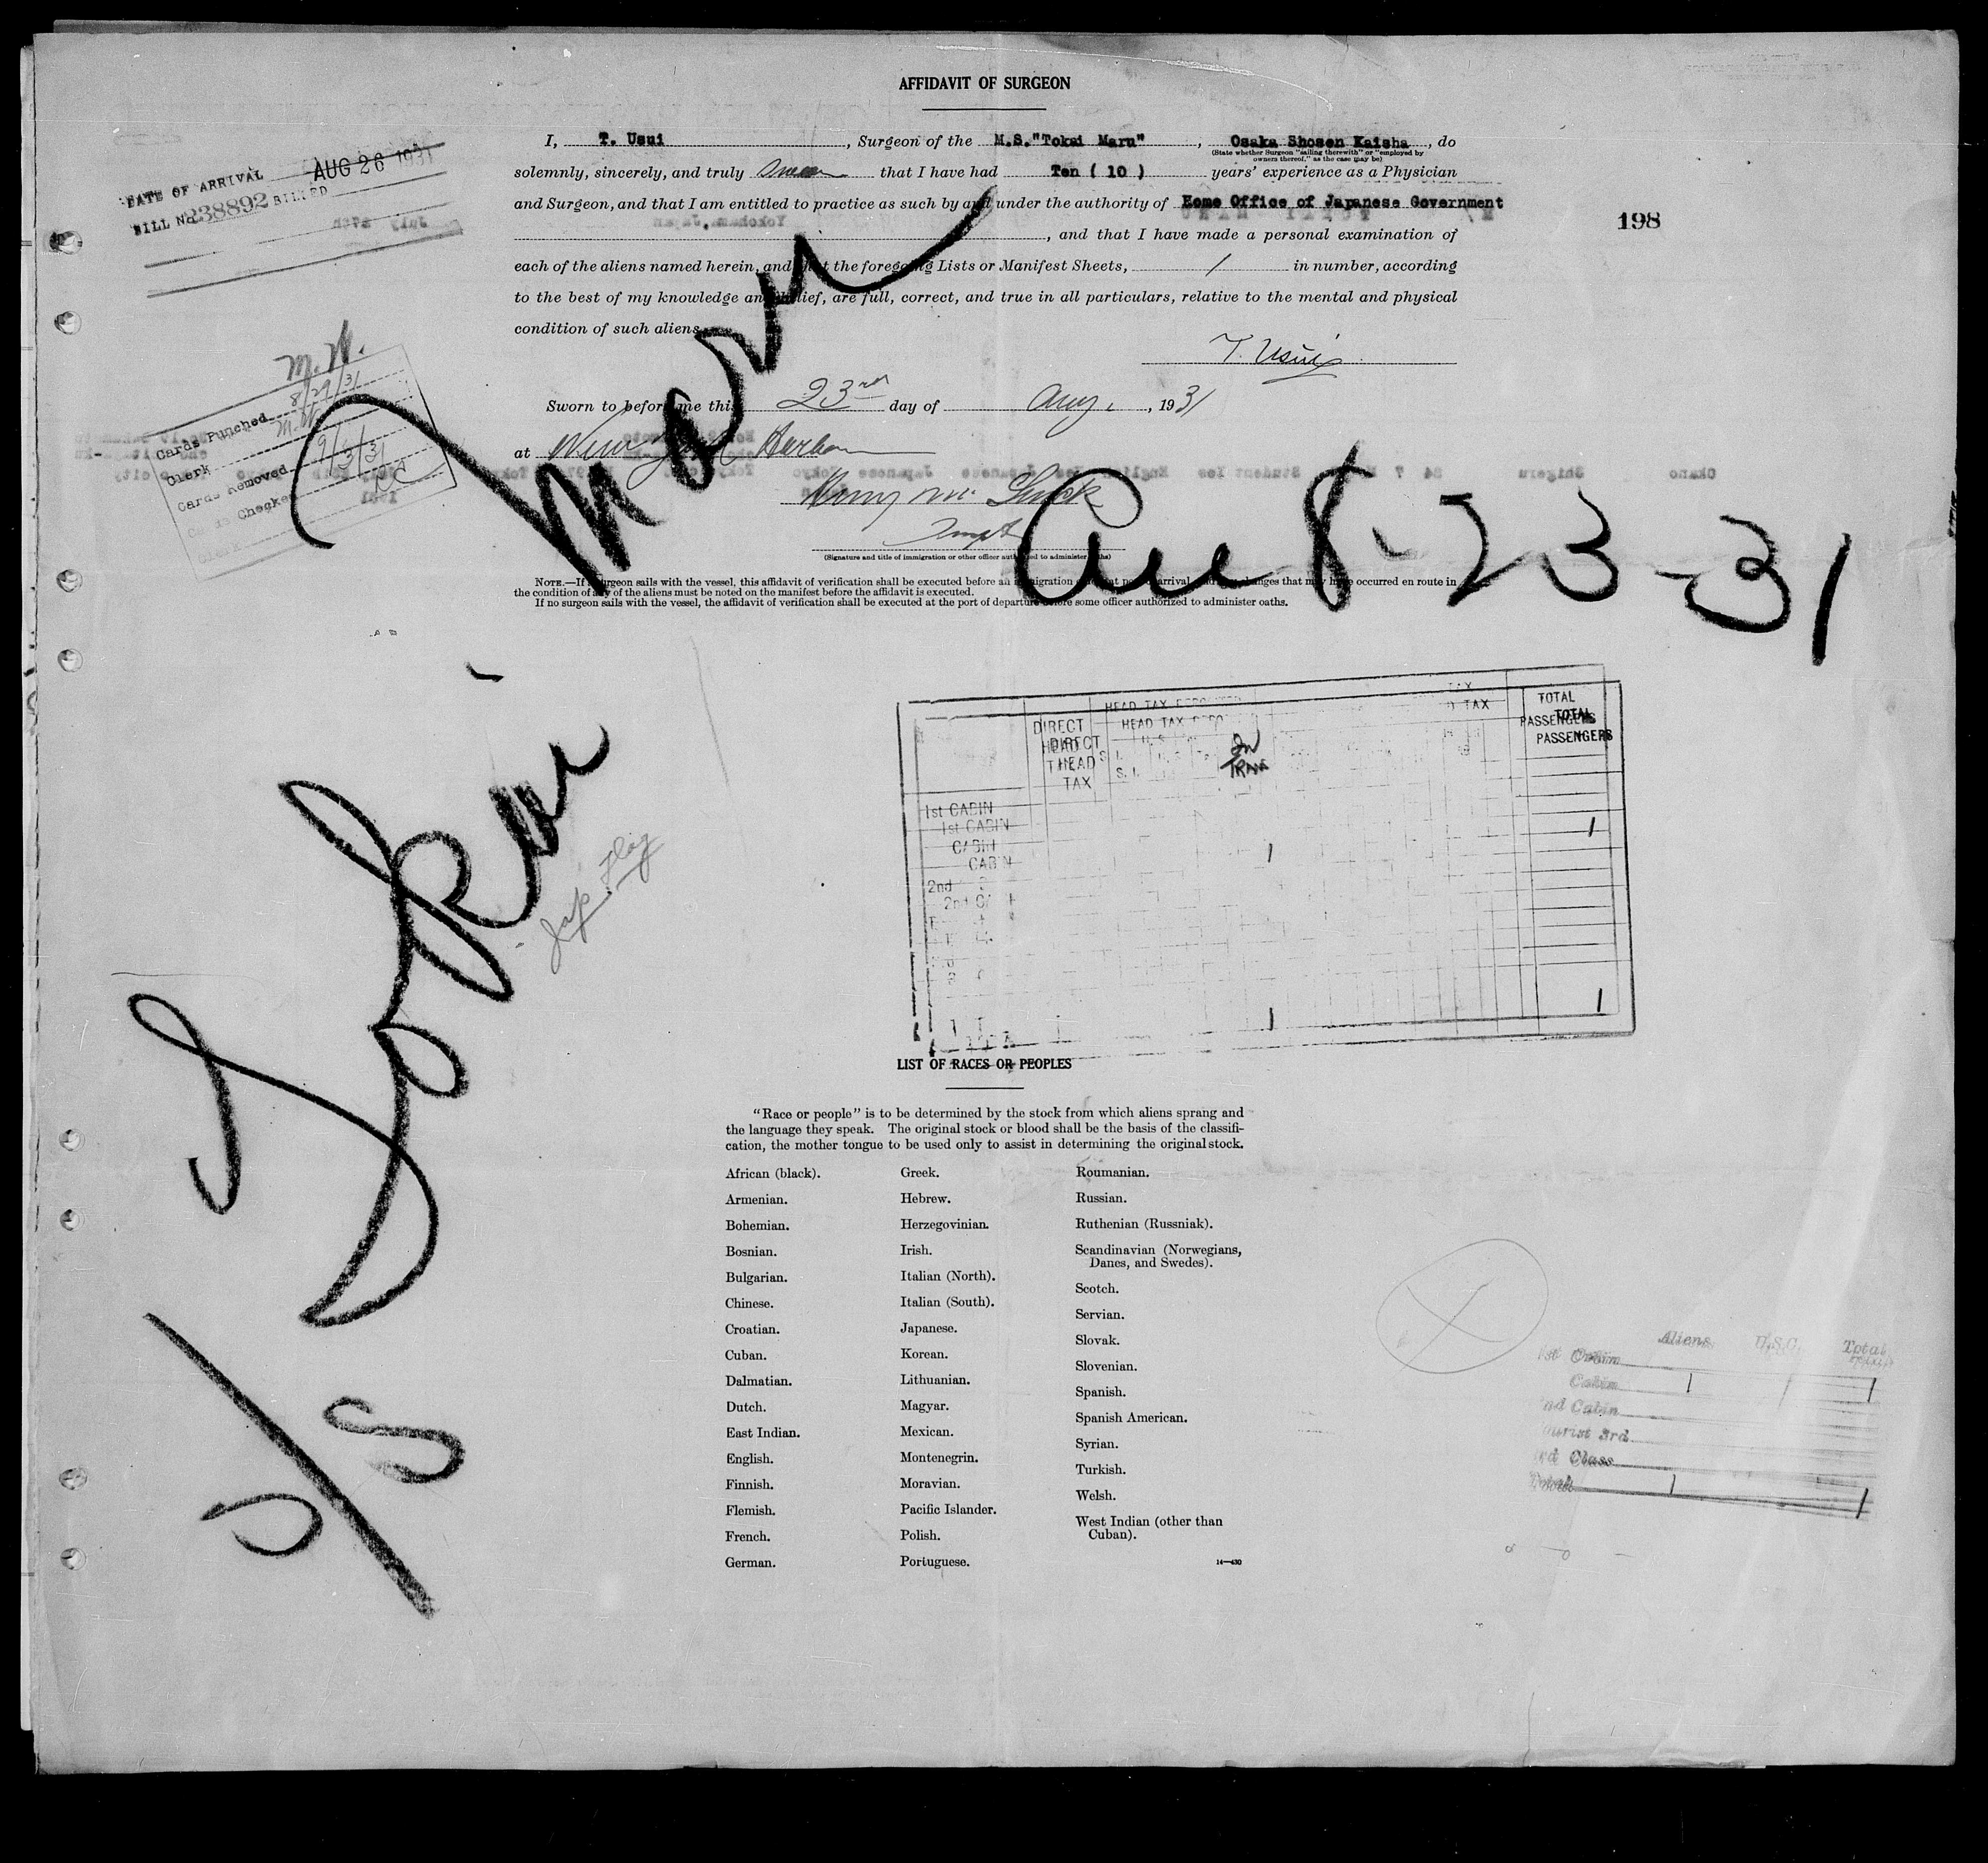 AFFIDAVIT OF SURGEON
I, T. Usui, Surgeon of the M.S."Tokai Maru", Osaka Shosen Kaisha, do
(State whether Surgeon "sailing therewith" or "employed by
owners thereof," as the case may be)
solemnly, sincerely, and truly swear that I have had Ten ( 10 ) years' experience as a Physician
and Surgeon, and that I am entitled to practice as such by and under the authority of Home Office of Japanese Government
, and that I have made a personal examination of
each of the aliens named herein, and that the foregoing Lists or Manifest Sheets, 1 in number, according
to the best of my knowledge and belief, are full, correct, and true in all particulars, relative to the mental and physical
condition of such aliens.
T. Usui
Sworn to before me this 23rd day of Aug., 1931
at New York Harbor
Inspt
(Signature and title of immigration or other officer authorized to administer oaths)
NOTE.—If a surgeon sails with the vessel, this affidavit of verification shall be executed before an immigration officer at port of arrival, and any changes that may have occurred en route in
the condition of any of the aliens must be noted on the manifest before the affidavit is executed.
If no surgeon sails with the vessel, the affidavit of verification shall be executed at the port of departure before some officer authorized to administer oaths.
DATE OF ARRIVAL AUG 26 1931
BILL No. 238892 BILLED
198
M.W.
Cards Punched 8/29/31
Clerk M.W.
Cards Removed 9/3/31
Cards Checked
Clerk
S/S Tokai Maru
Arr 8-23-31
Jap. Flag
DIRECT HEAD TAX
HEAD TAX
S. I.
In Tran
TOTAL PASSENGERS
1st CABIN
CABIN 1 1
2nd CABIN
1 1
LIST OF RACES OR PEOPLES
"Race or people" is to be determined by the stock from which aliens sprang and
the language they speak. The original stock or blood shall be the basis of the classifi-
cation, the mother tongue to be used only to assist in determining the original stock.
African (black).
Armenian.
Bohemian.
Bosnian.
Bulgarian.
Chinese.
Croatian.
Cuban.
Dalmatian.
Dutch.
East Indian.
English.
Finnish.
Flemish.
French.
German.
Greek.
Hebrew.
Herzegovinian.
Irish.
Italian (North).
Italian (South).
Japanese.
Korean.
Lithuanian.
Magyar.
Mexican.
Montenegrin.
Moravian.
Pacific Islander.
Polish.
Portuguese.
Roumanian.
Russian.
Ruthenian (Russniak).
Scandinavian (Norwegians,
Danes, and Swedes).
Scotch.
Servian.
Slovak.
Slovenian.
Spanish.
Spanish American.
Syrian.
Turkish.
Welsh.
West Indian (other than
Cuban).
14—430
Aliens U.S.C. Total
1st Cabin
Cabin 1 1
2nd Cabin
Tourist 3rd
3rd Class
Total 1 1